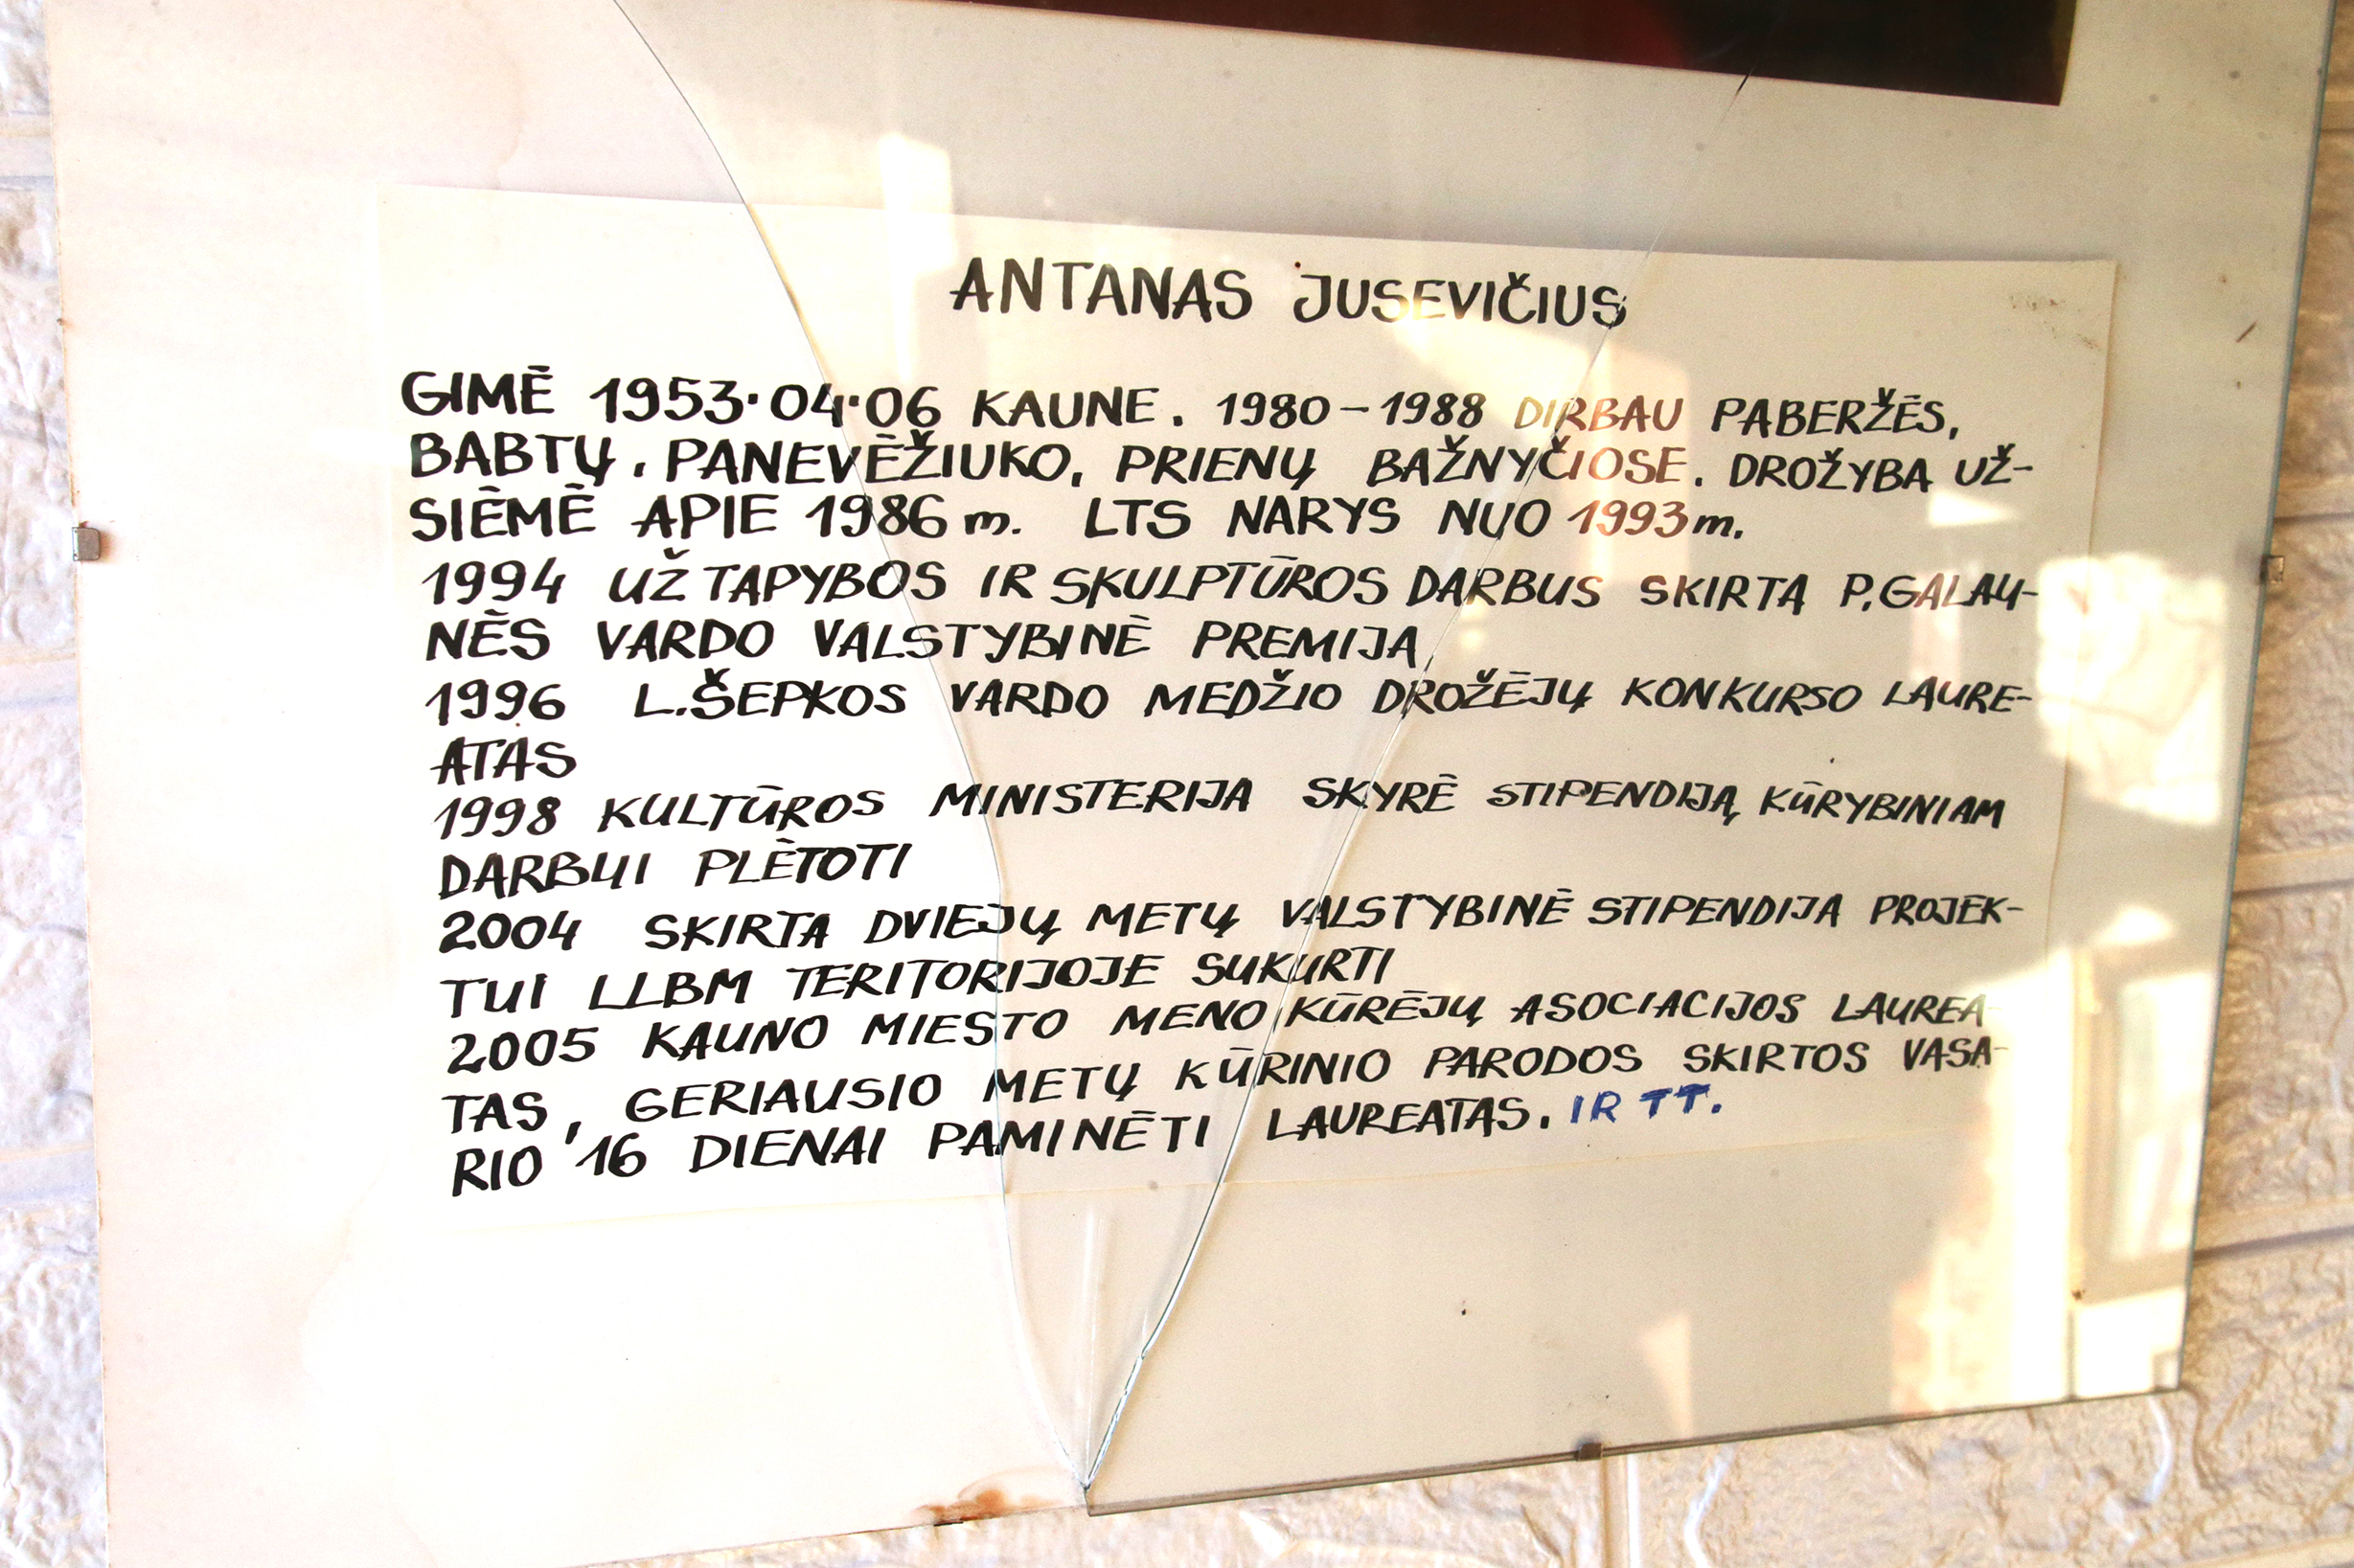 ANTANAS JUSEVIČIUS
GIMĖ 1953·04·06 KAUNE. 1980-1988 DIRBAU PABERŽĖS,
BABTŲ, PANEVĖŽIUKO, PRIENŲ BAŽNYČIOSE. DROŽYBA UŽ-
SIĖMĖ APIE 1986 m. LTS NARYS NUO 1993 m.
1994 UŽ TAPYBOS IR SKULPTŪROS DARBUS SKIRTA P. GALAU-
NĖS VARDO VALSTYBINĖ PREMIJA,
1996 L. ŠEPKOS VARDO MEDŽIO DROŽĖJŲ KONKURSO LAURE-
ATAS
1998 KULTŪROS MINISTERIJA SKYRĖ STIPENDIJĄ KŪRYBINIAM
DARBUI PLĖTOTI
2004 SKIRTA DVIEJŲ METŲ VALSTYBINĖ STIPENDIJA PROJEK-
TUI LLBM TERITORIJOJE SUKURTI
2005 KAUNO MIESTO MENO KŪRĖJŲ ASOCIACIJOS LAUREA-
TAS, GERIAUSIO METŲ KŪRINIO PARODOS SKIRTOS VASA-
RIO '16 DIENAI PAMINĖTI LAUREATAS. IR TT.